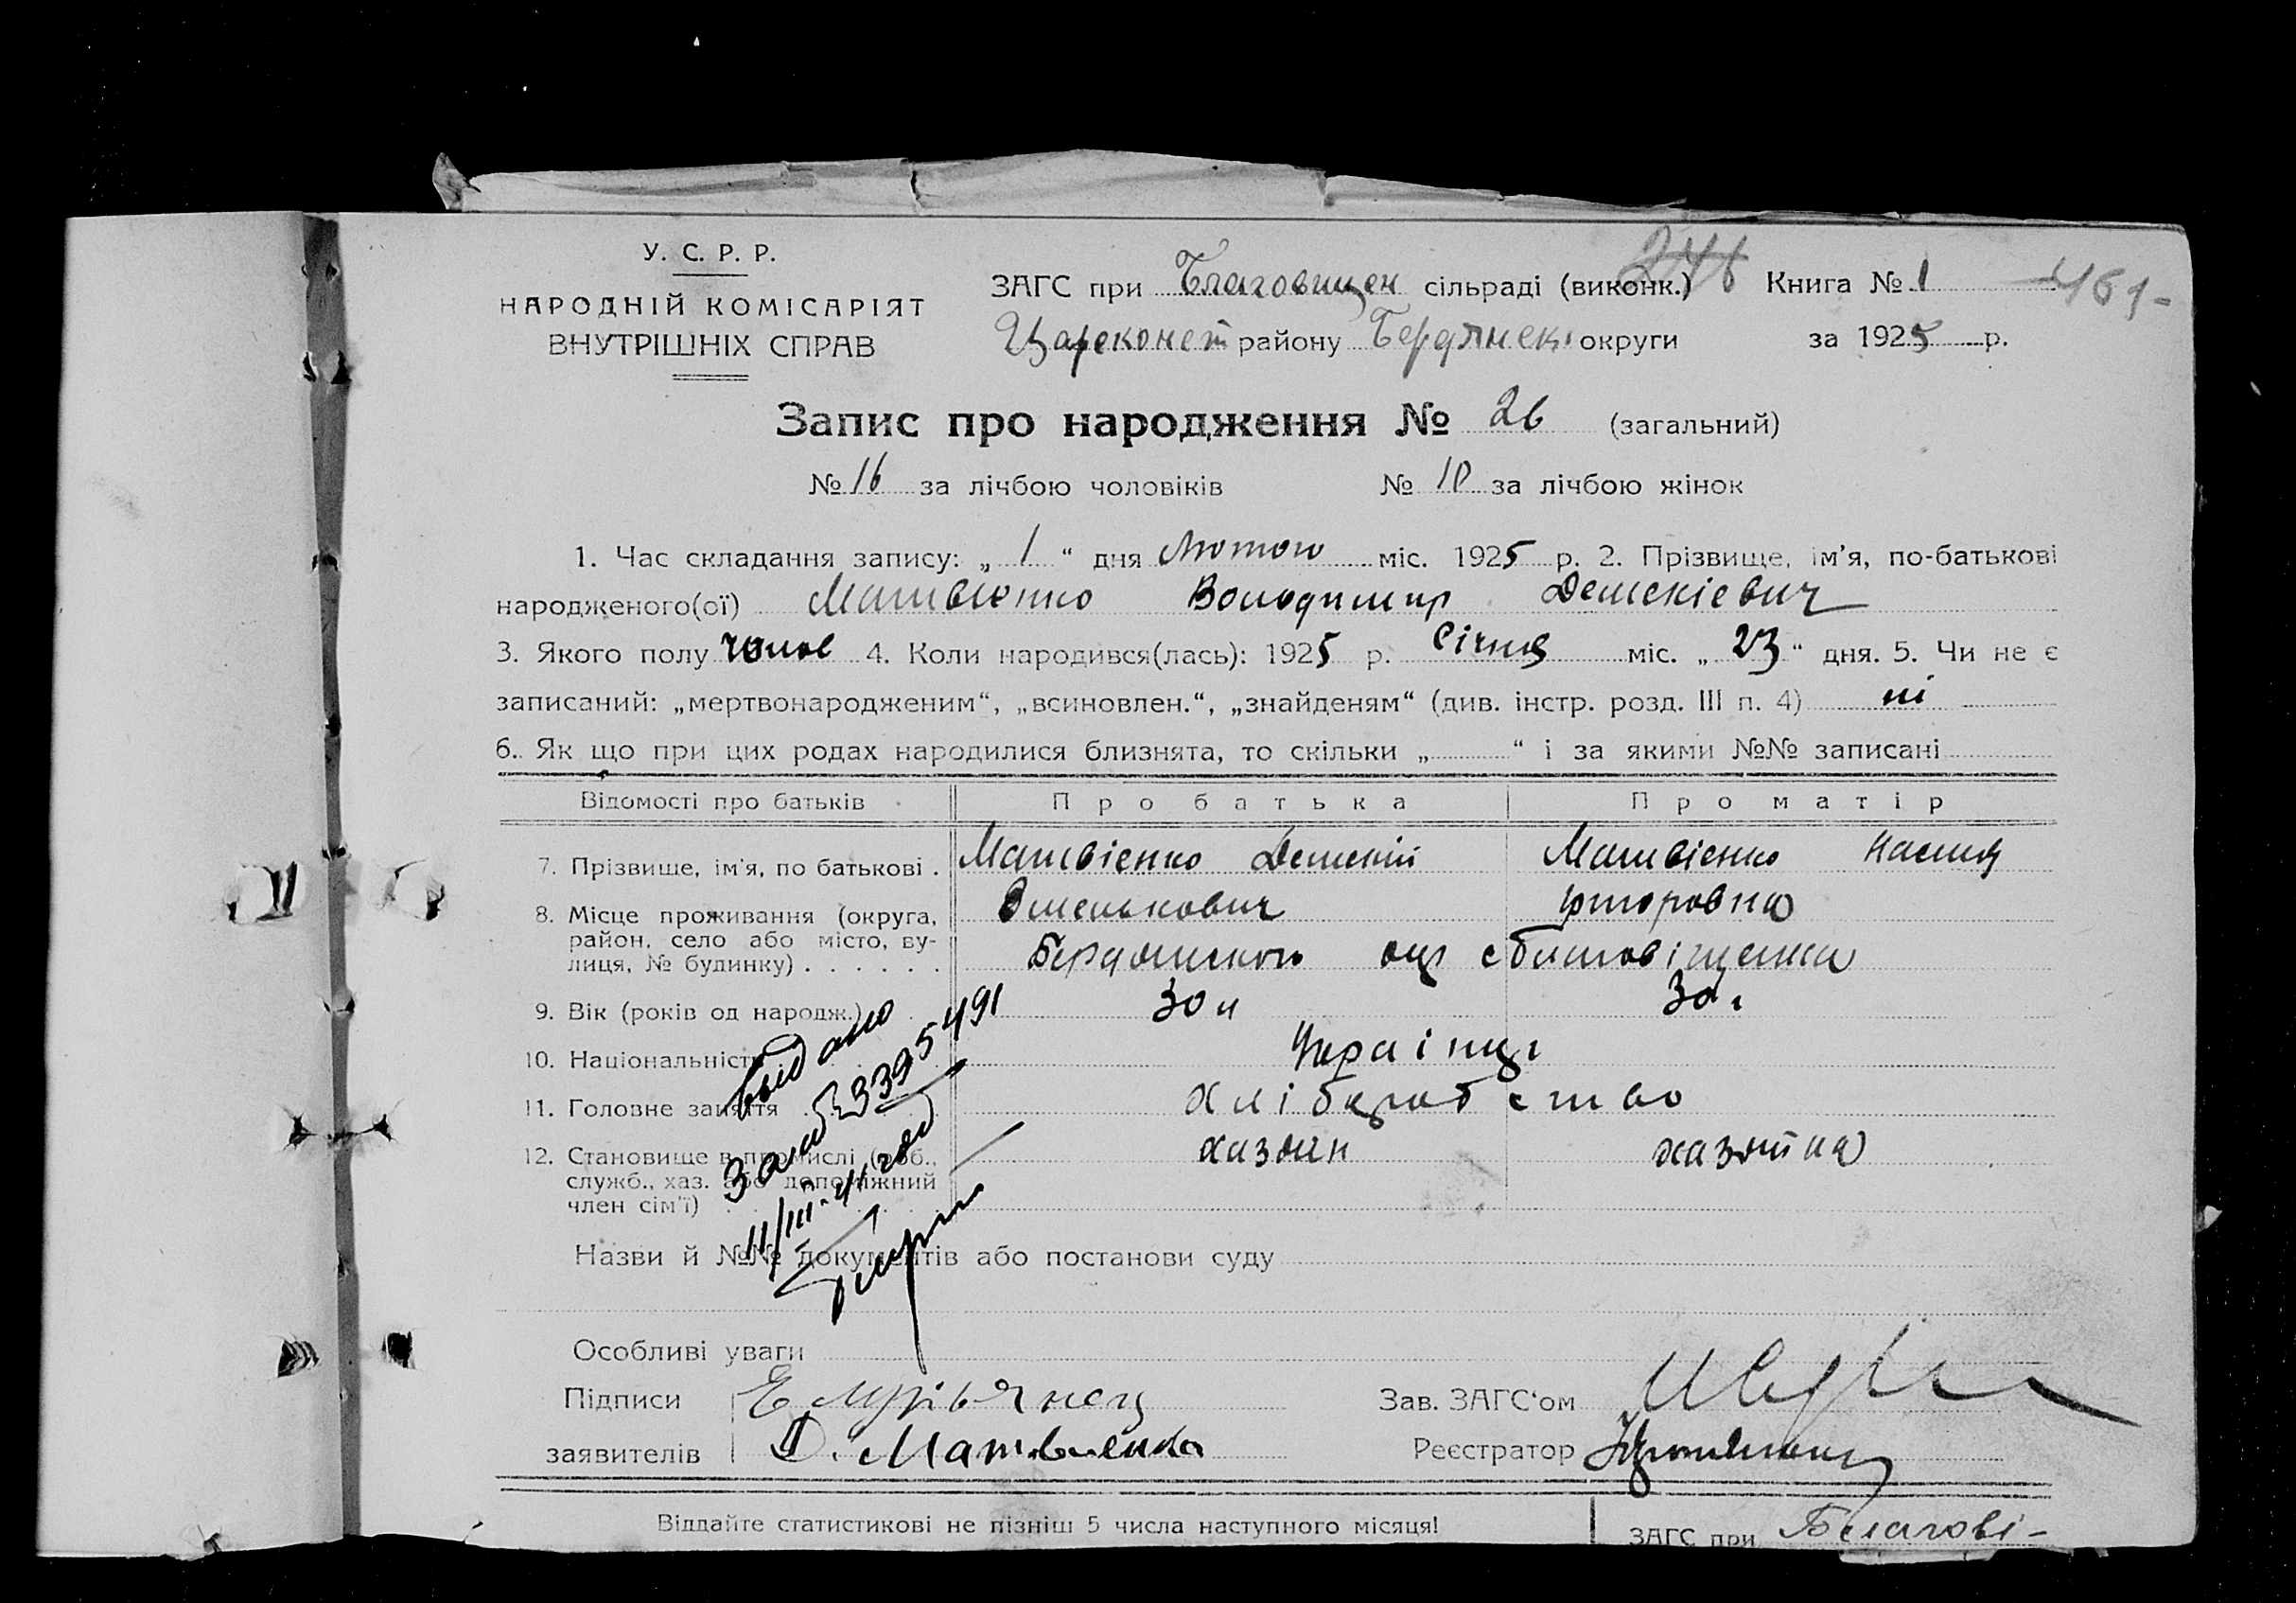 У. С. Р. Р.
НАРОДНІЙ КОМІСАРІЯТ
ВНУТРІШНІХ СПРАВ
ЗАГС при Благовищен сільраді (виконк.) 246 Книга № 1 461-
Цареконст району Бердянск округи за 1925 р.
Запис про народження № 26 (загальний)
№ 16 за лічбою чоловіків № 10 за лічбою жінок
1. Час складання запису: „ 1 “ дня Лютого міс. 1925 р. 2. Прізвище, ім'я, по-батькові
народженого(ої) Матвієнко Володимир
3. Якого полу чолов 4. Коли народився(лась): 1925 р. Січня міс. „ 23 “ дня. 5. Чи не є
записаний: „мертвонародженим“, „всиновлен.“, „знайденям“ (див. інстр. розд. III п. 4) ні
6. Як що при цих родах народилися близнята, то скільки „ “ і за якими №№ записані
Відомості про батьків Про батька Про матір
7. Прізвище, ім'я, по батькові . Матвієнко Матвієнко Настя
8. Місце проживання (округа, район, село або місто, вулиця, № будинку) . . . . . .
Омелькович
Бердянського окр с Благовіщенка
9. Вік (років од народж.) 30 30
10. Національність Українці
11. Головне заняття Хліборобство
12. Становище в промислі (роб., служб., хаз. або допоміжний член сім'ї) хазяїн хазяйка
выдано
3395491
11/III-41 год
Назви й №№ документів або постанови суду
Особливі уваги
Підписи Е
заявителів Д. Матвиенко
Зав. ЗАГС'ом
Реєстратор
Віддайте статистикові не пізніш 5 числа наступного місяця!
ЗАГС при Благові-